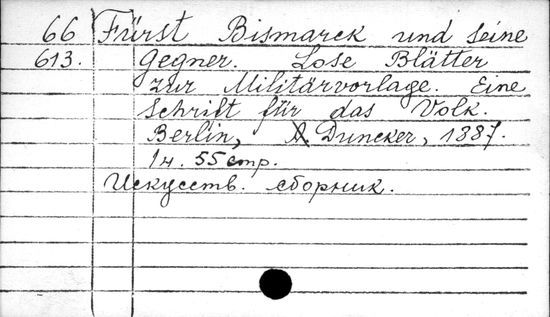 66 Fürst Bismarck und seine
613. Gegner. Lose Blätter
zur Militärvorlage. Eine
Schrift für das Volk.
Berlin, A. Duncker, 1887.
1 н. 55 стр.
Искусств. сборник.